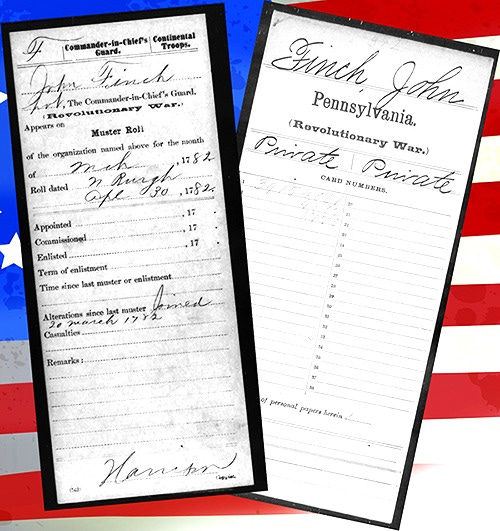 F
Commander-in-Chief's Guard.
Continental Troops.
John Finch
The Commander-in-Chief's Guard.
(Revolutionary War.)
Appears on
Muster Roll
of the organization named above for the month
of Mch, 1782
Roll dated N Burgh
Apl 30, 1782.
Appointed , 17 .
Commissioned , 17 .
Enlisted , 17 .
Term of enlistment
Time since last muster or enlistment
Alterations since last muster Joined
20 March 1782
Casualties
Remarks:
Harrison
Copyist.
Finch, John
Pennsylvania.
(Revolutionary War.)
Private Private
CARD NUMBERS.
of personal papers herein